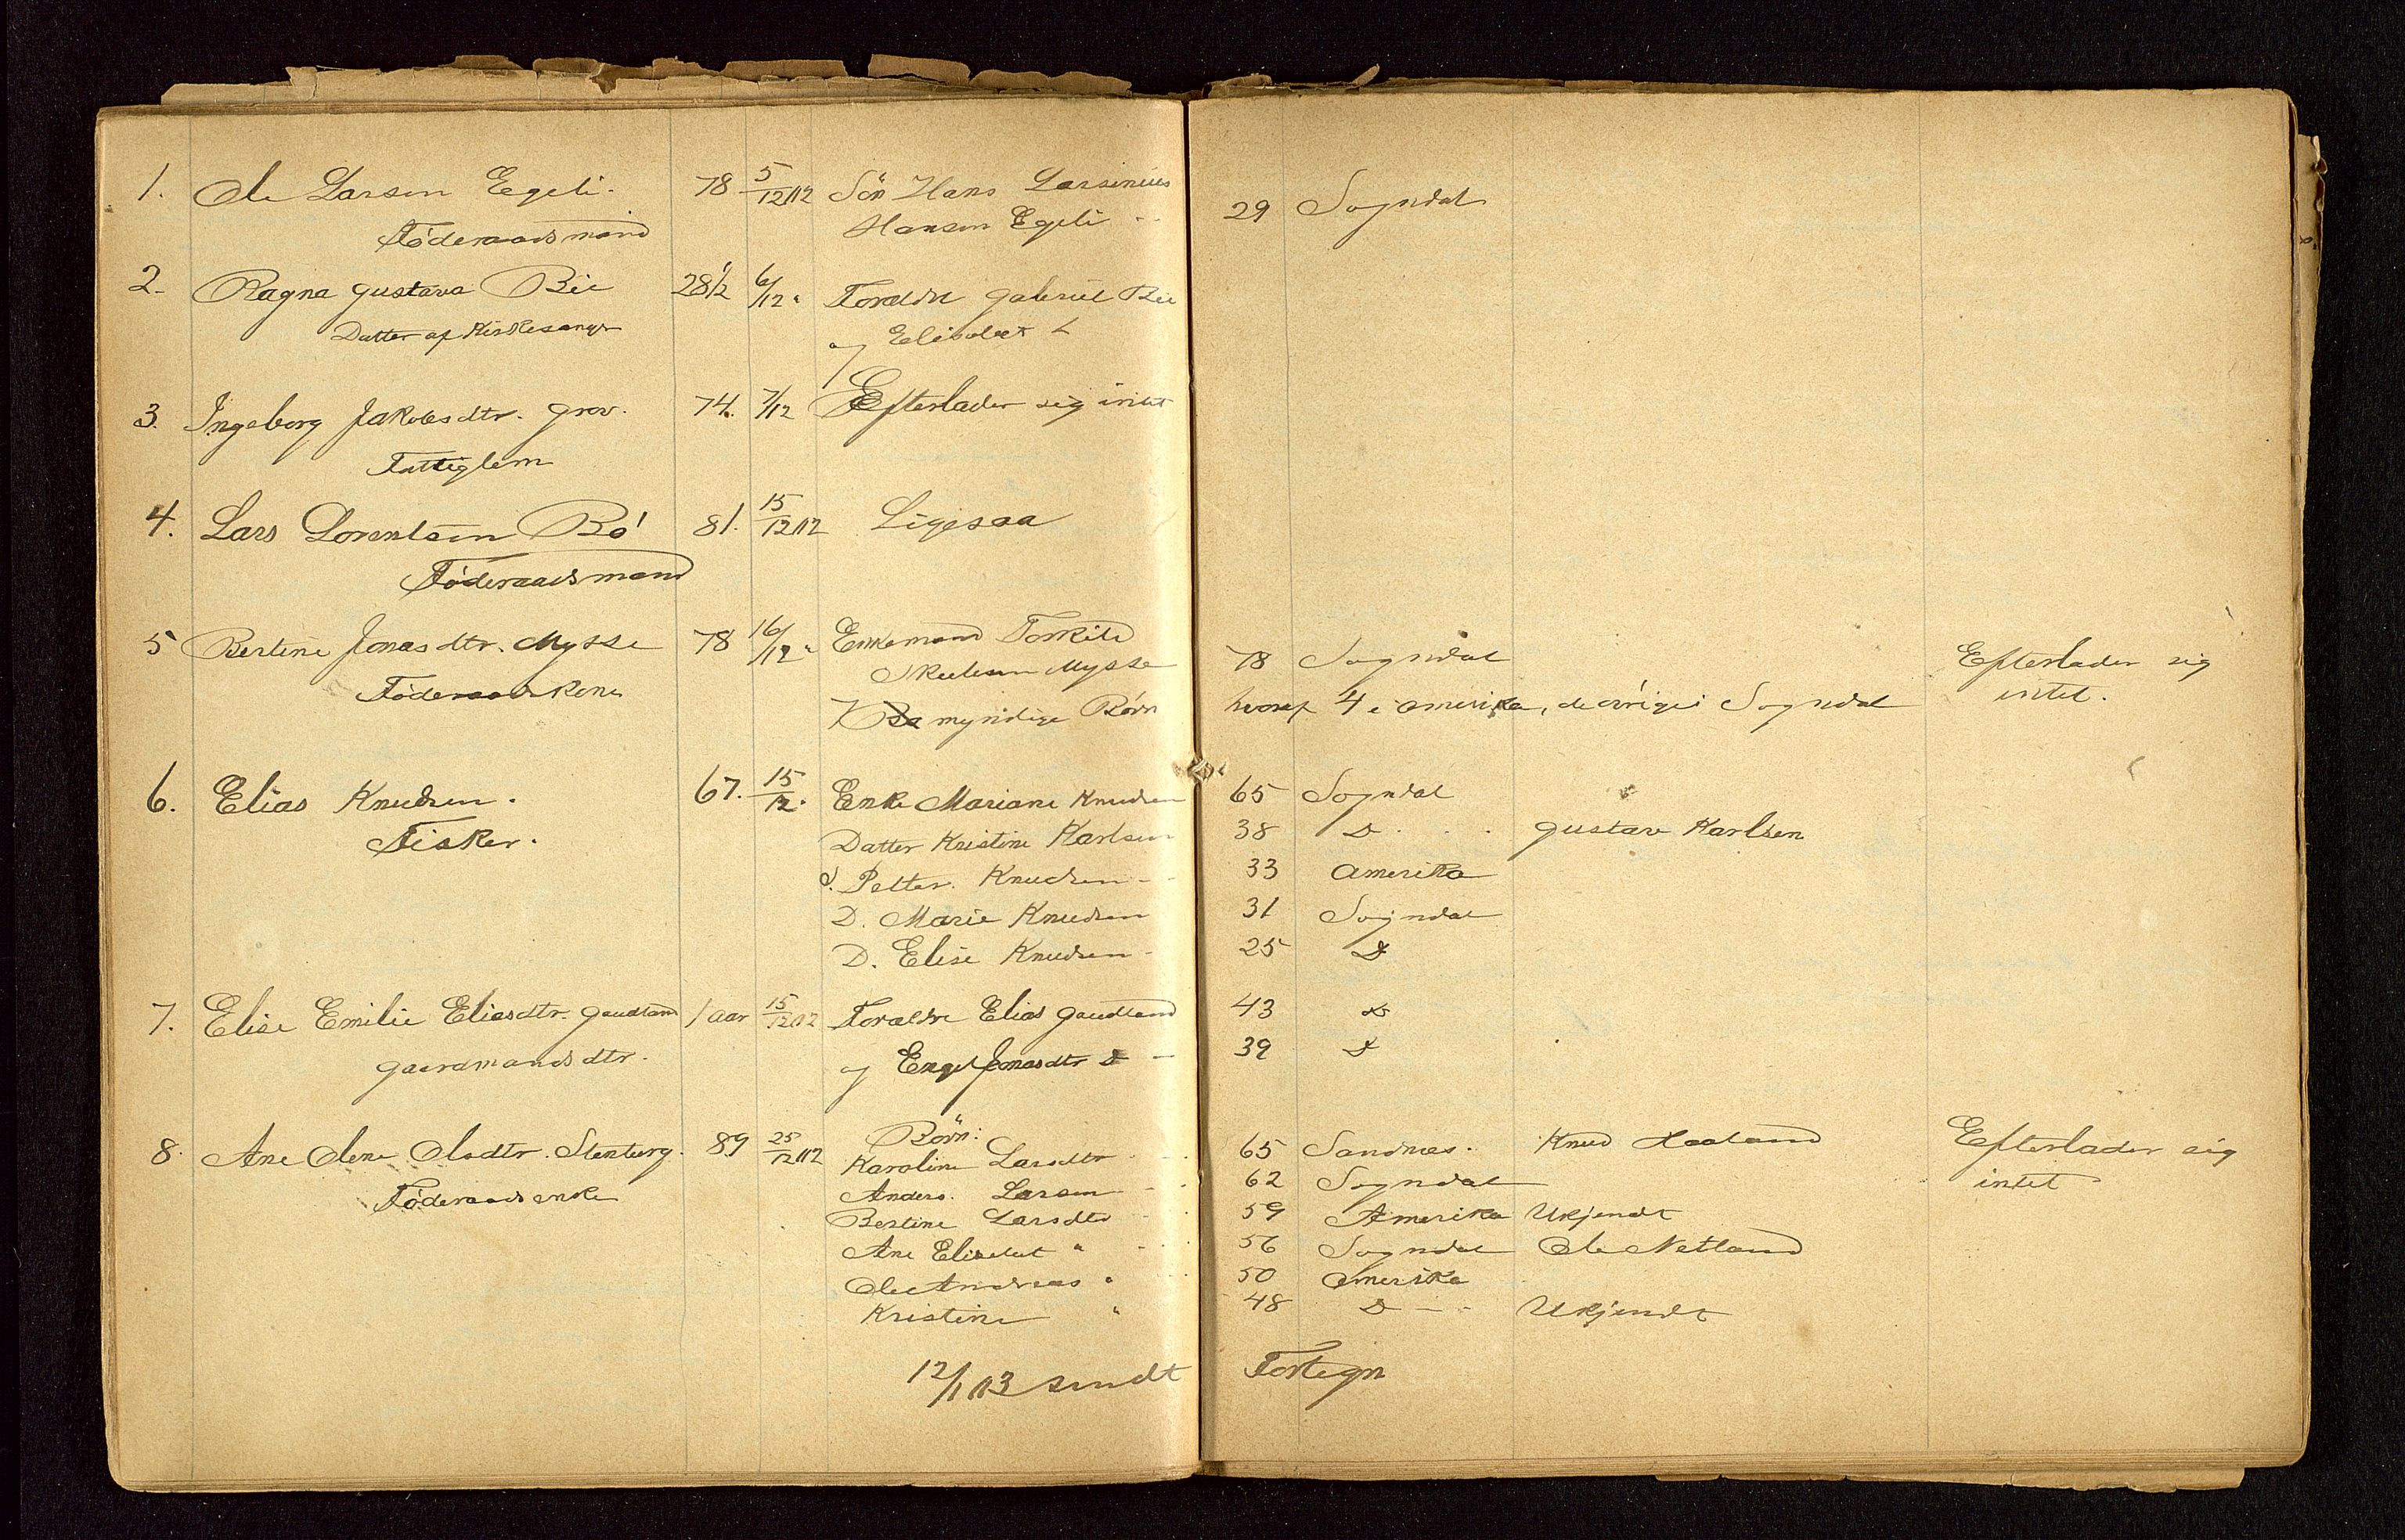 1. Ole Larsen Egeli. 78 5/12 12 Sön Hans Larsenius 29 Sogndal
Föderaadsmand Hansen Egeli
2. Ragna Gustava Bie 28 1/2 6/12 " Foreldre Gabriel Bie
Datter af Kirkesanger og Elisabet
3. Ingeborg Jakobsdtr. Grov. 74. 7/12 Efterlader sig intet
Fattiglem
4. Lars Lorentsen Bö 81. 15/12 12 Ligesaa
Föderaadsmand
5 Bertine Jonasdtr. Mysse 78 16/12 " Enkemand Torkild
Skulesen Mysse 78 Sogndal Efterlader sig
Föderaadskone 7 myndige Börn hvoraf 4 i Amerika, de övrige i Sogndal intet.
6. Elias Knudsen. 67. 15/12 " Enke Mariane Knudsen 65 Sogndal
Fisker. Datter Kristine Karlsen 38 D Gustav Karlsen
S. Petter Knudsen 33 Amerika
D. Marie Knudsen 31 Sogndal
D. Elise Knudsen 25 D
7. Elise Emilie Eliasdtr. Gaudland 1 aar 15/12 12 Foreldre Elias Gaudland 43 D
Gaardmandsdtr. og Engel Jonasdtr D 39 D
8. Ane Olene Olsdtr. Stenberg. 89 25/12 12 Börn:
Karoline Larsdtr 65 Sandnes. Knud Haaland Efterlader sig
Föderaadsenke Anders Larsen 62 Sogndal intet
Bertine Larsdtr 59 Amerika Ukjendt
Ane Elisebet " 56 Sogndal Ole Netland
Ole Andreas " 50 Amerika
Kristine " 48 D Ukjendt
12/1 13 sendt Fortegn